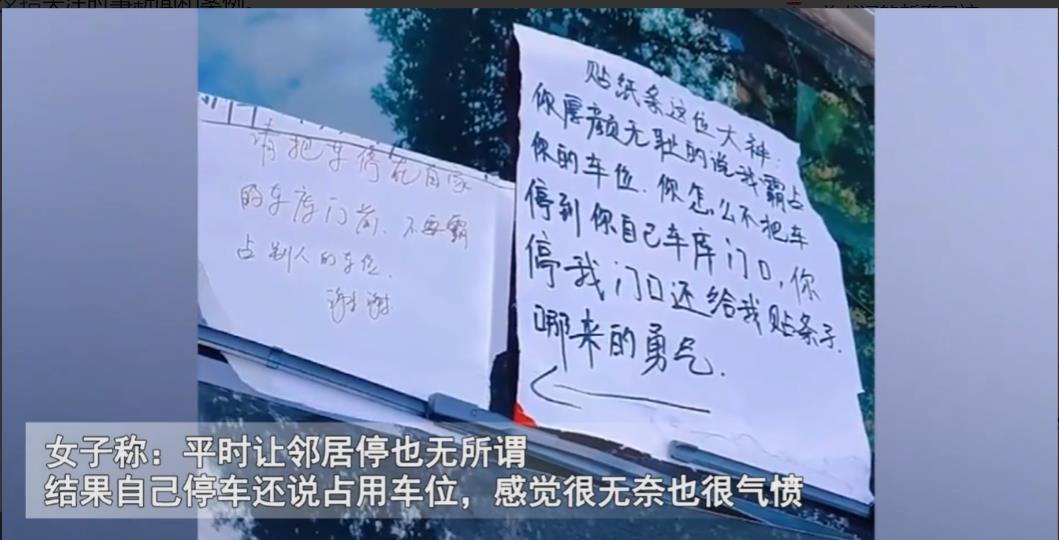 请把车停在自家
的车库门前,不要霸
占别人的车位.
谢谢
贴纸条这位大神:
你厚颜无耻的说我霸占
你的车位.你怎么不把车
停到你自己车库门口,你
停我门口还给我贴条子.
哪来的勇气.
女子称：平时让邻居停也无所谓
结果自己停车还说占用车位，感觉很无奈也很气愤